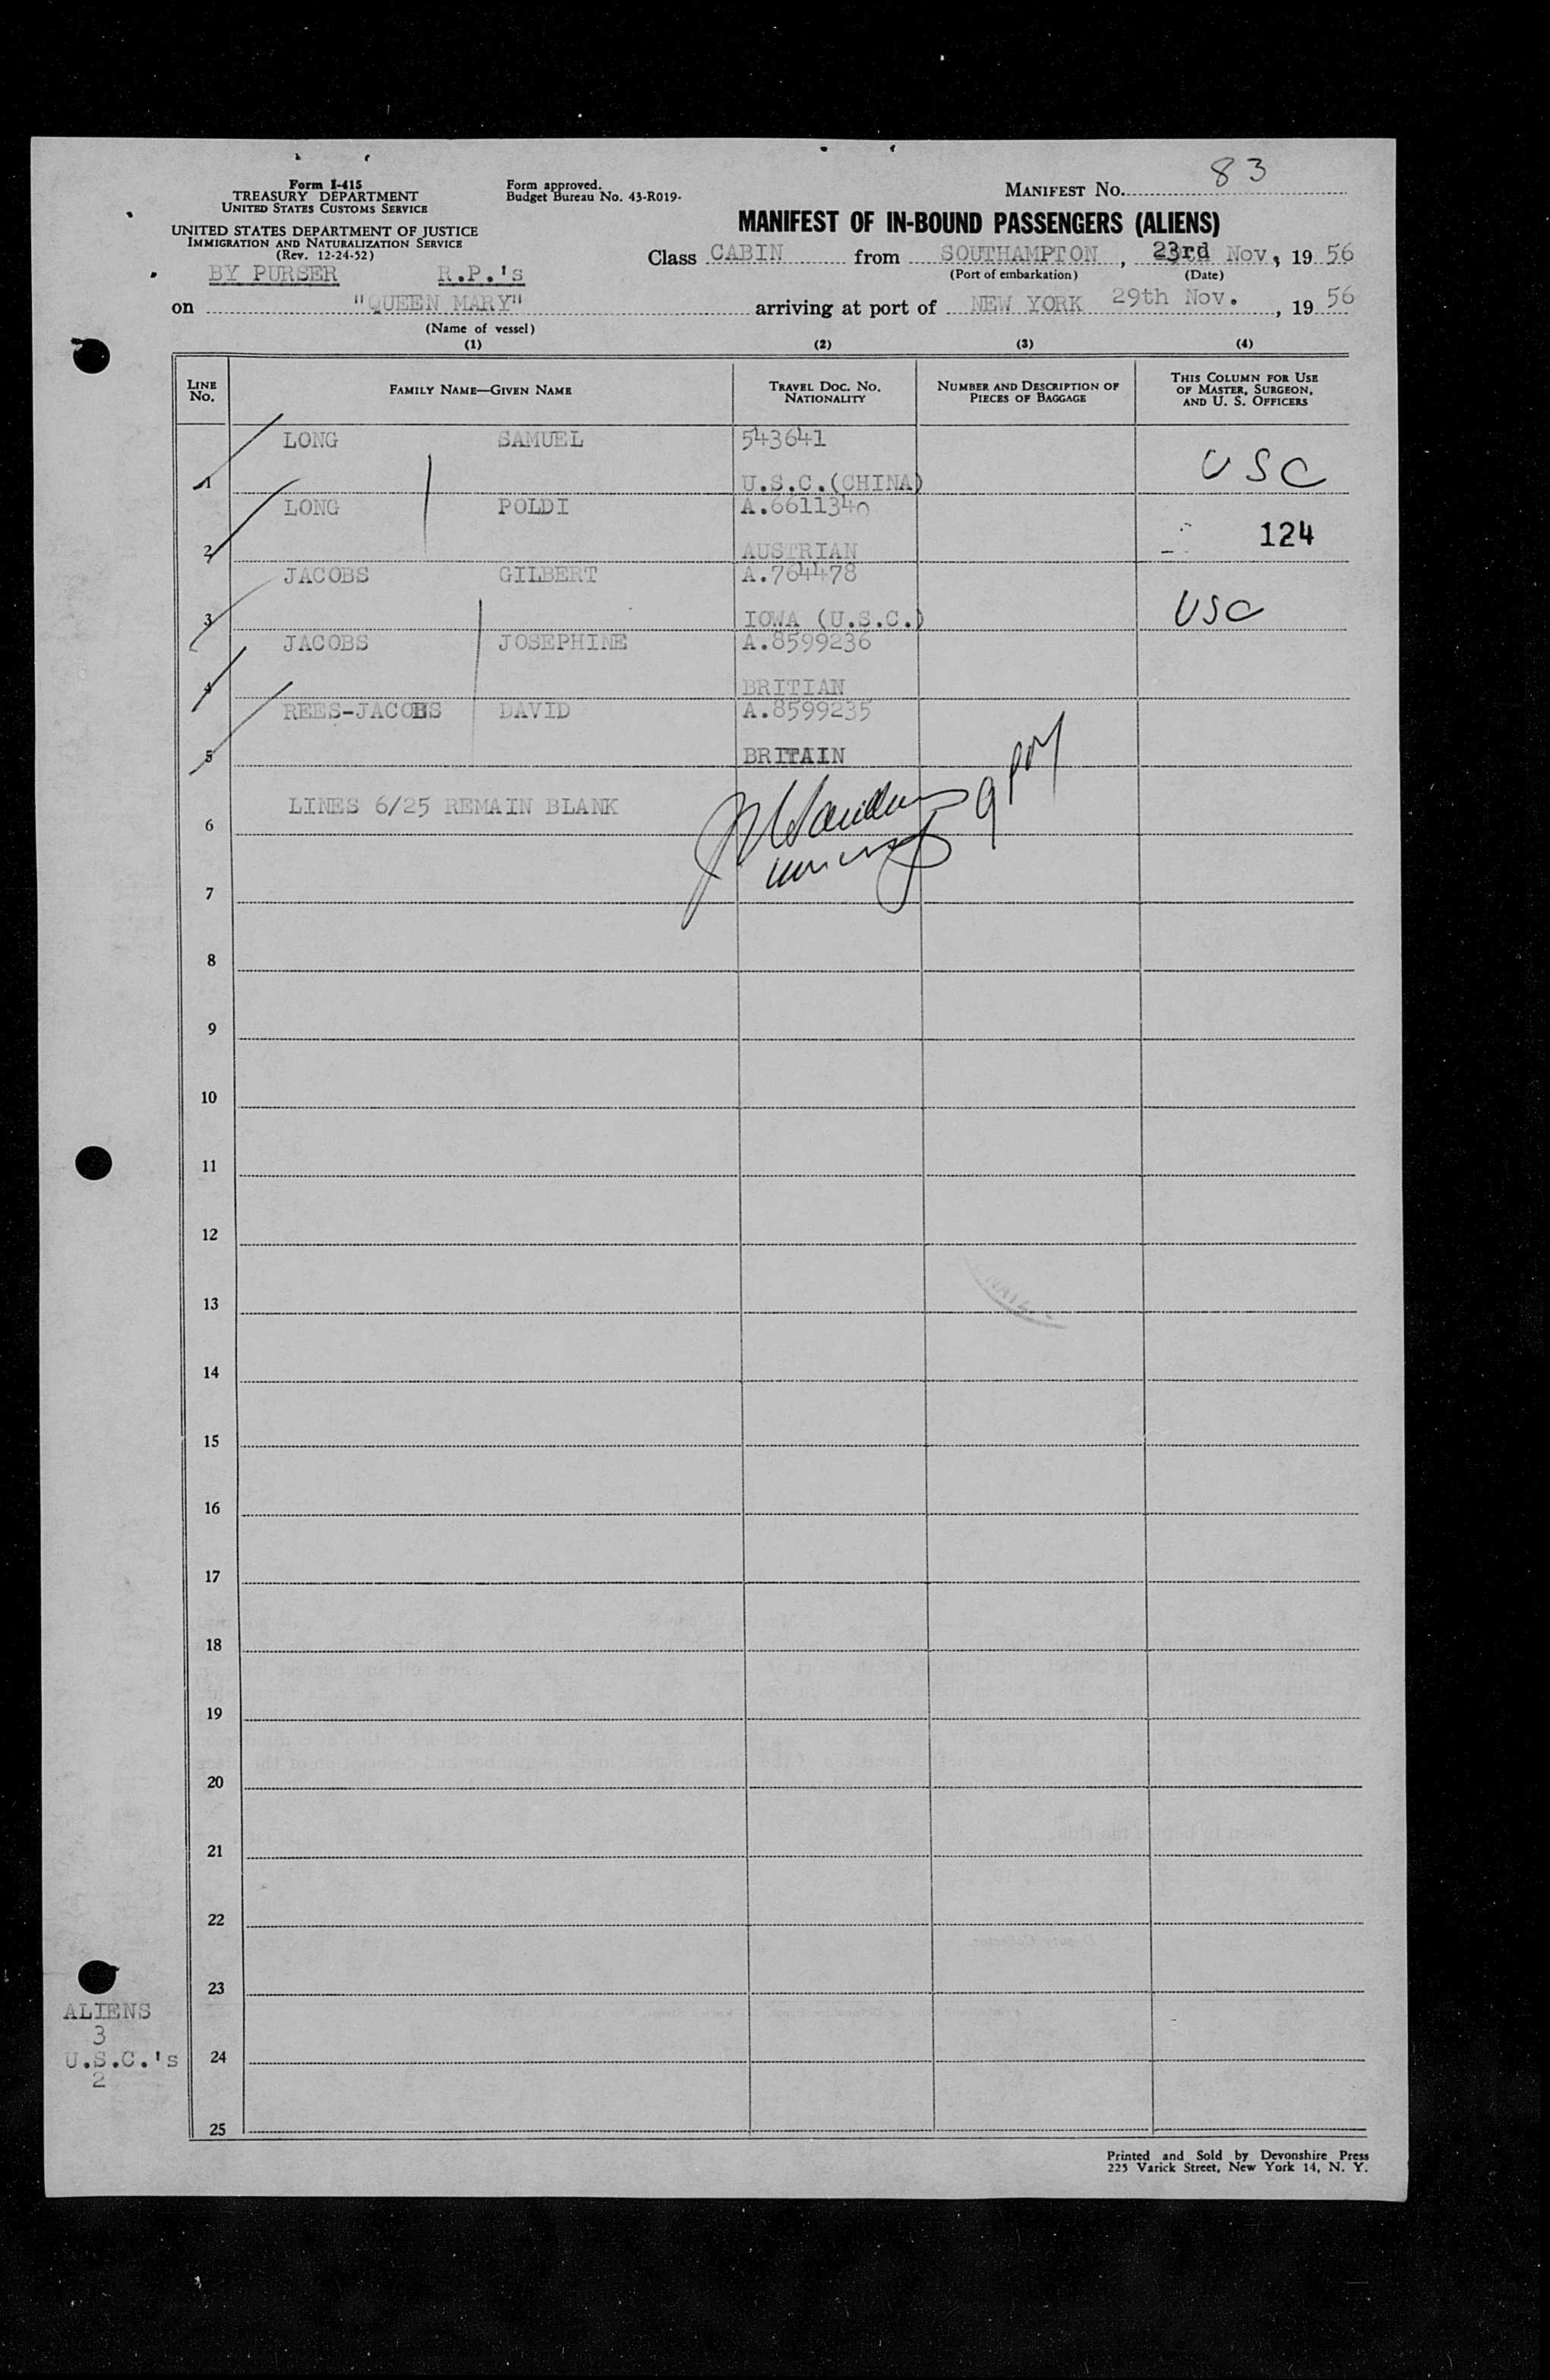 Form I-415
TREASURY DEPARTMENT
UNITED STATES CUSTOMS SERVICE
UNITED STATES DEPARTMENT OF JUSTICE
IMMIGRATION AND NATURALIZATION SERVICE
(Rev. 12-24-52)
Form approved.
Budget Bureau No. 43-R019-
MANIFEST NO. 83
MANIFEST OF IN-BOUND PASSENGERS (ALIENS)
BY PURSER R.P.'s
Class CABIN from SOUTHAMPTON, 23rd Nov, 19 56
(Port of embarkation) (Date)
on "QUEEN MARY" arriving at port of NEW YORK 29th Nov., 19 56
(Name of vessel)
(1) (2) (3) (4)
LINE No. FAMILY NAME—GIVEN NAME TRAVEL DOC. NO. NATIONALITY NUMBER AND DESCRIPTION OF PIECES OF BAGGAGE THIS COLUMN FOR USE OF MASTER, SURGEON, AND U. S. OFFICERS
LONG SAMUEL 543641
1 U.S.C.(CHINA) USC
LONG POLDI A.6611340
2 AUSTRIAN 124
JACOBS GILBERT A.764478
3 IOWA (U.S.C.) USC
JACOBS JOSEPHINE A.8599236
4 BRITIAN
REES-JACOBS DAVID A.8599235
5 BRITAIN
LINES 6/25 REMAIN BLANK 9 PM
6
7
8
9
10
11
12
13
14
15
16
17
18
19
20
21
22
23
ALIENS
3
U.S.C.'s 24
2
25
Printed and Sold by Devonshire Press
225 Varick Street, New York 14, N. Y.